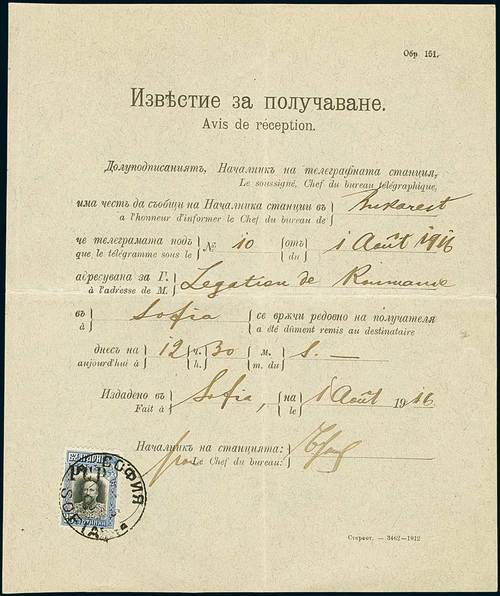 Обр. 151.
Извѣстие за получаване.
Avis de réception.
Долуподписаниятъ, Началникъ на телеграфната станция,
Le soussigné, Chef du bureau télégraphique,
има честь да съобщи на Началника станции въ Bukarest
a l'honneur d'informer le Chef du bureau de
че телеграмата подъ № 10 отъ 1 Août 1916
que le télégramme sous le du
адресувана за Г. Legation de Roumanie
à l'adresse de M.
въ Sofia се врѫчи редовно на получателя
à a été dûment remis au destinataire
днесъ на 12 ч. 30 м. s. —
aujourd'hui à h. m. du
Издадено въ Sofia, на 1 Août 1916
Fait à le
Началникъ на станцията:
Le Chef du bureau:
БЪЛГАРИЯ
СОФИЯ
SOFIA
Стереот. — 3462—1912